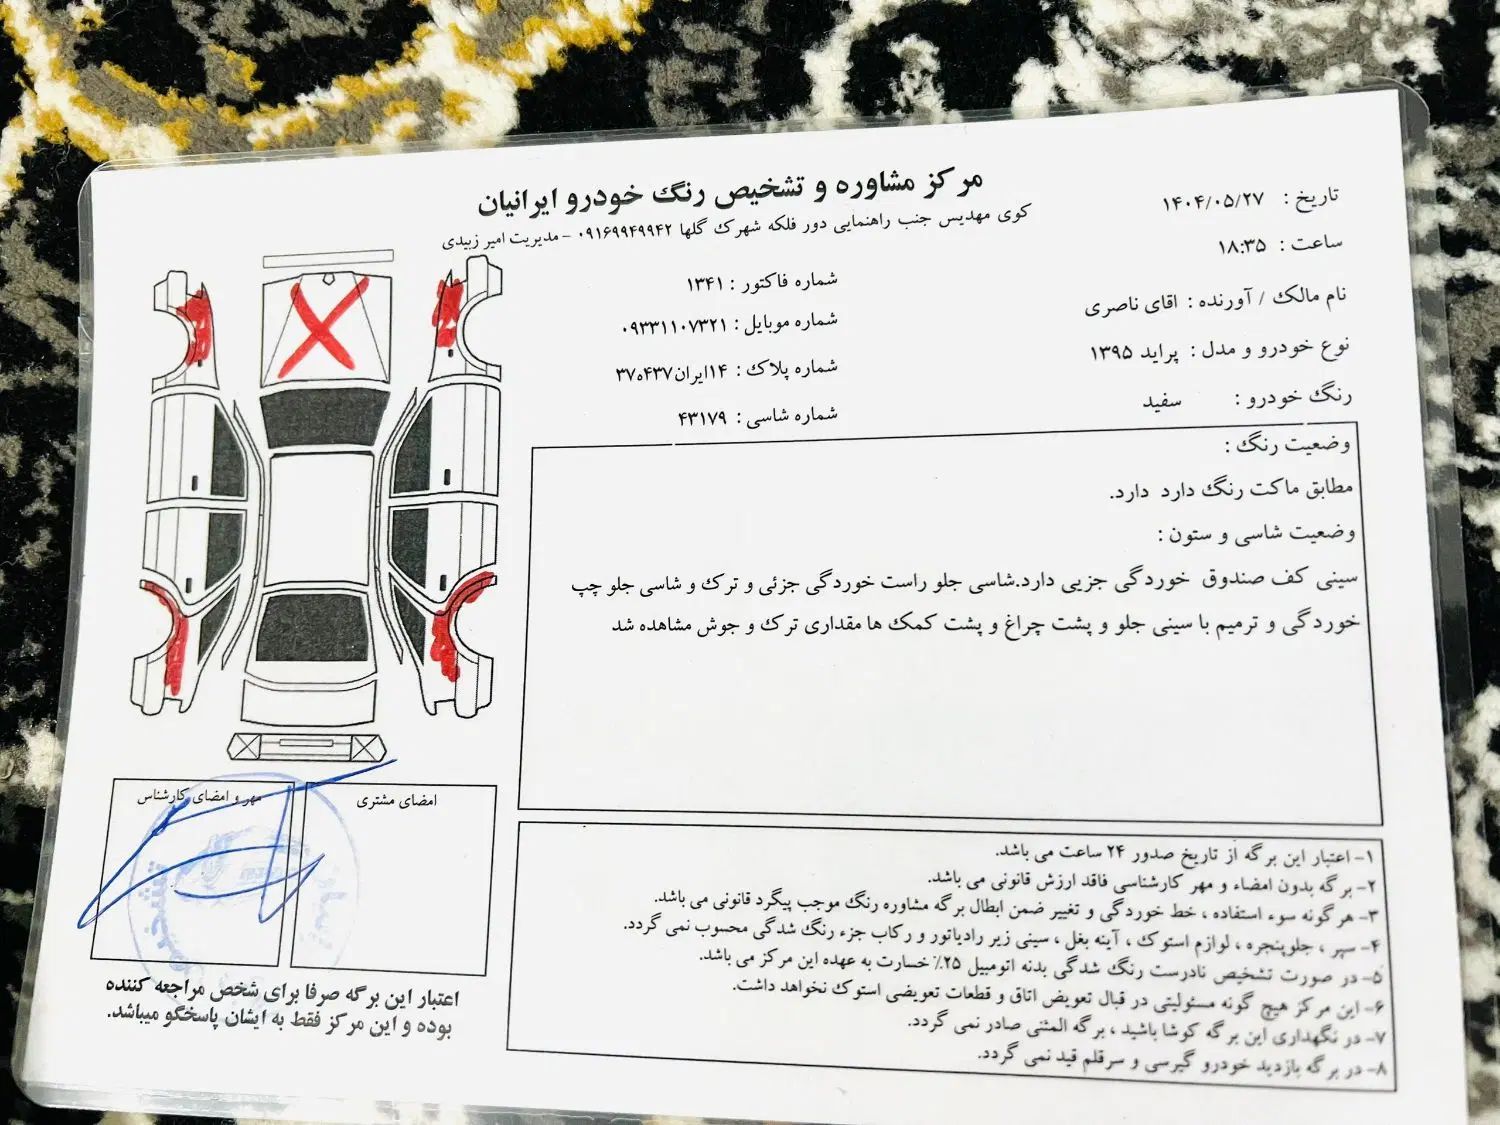 مرکز مشاوره و تشخیص رنگ خودرو ایرانیان
کوی مهدیس جنب راهنمایی دور فلکه شهرک گلها ۰۹۱۶۹۹۴۹۹۴۲ - مدیریت امیر زبیدی
تاریخ : ۱۴۰۴/۰۵/۲۷
ساعت : ۱۸:۳۵
نام مالک / آورنده : اقای ناصری
نوع خودرو و مدل : پراید ۱۳۹۵
رنگ خودرو : سفید
شماره فاکتور : ۱۳۴۱
شماره موبایل : ۰۹۳۳۱۱۰۷۳۲۱
شماره پلاک : ۱۴ایران۴۳۷ه۳۷
شماره شاسی : ۴۳۱۷۹
وضعیت رنگ :
مطابق ماکت رنگ دارد دارد.
وضعیت شاسی و ستون :
سینی کف صندوق خوردگی جزیی دارد.شاسی جلو راست خوردگی جزئی و ترک و شاسی جلو چپ
خوردگی و ترمیم با سینی جلو و پشت چراغ و پشت کمک ها مقداری ترک و جوش مشاهده شد
مهر و امضای کارشناس
امضای مشتری
اعتبار این برگه صرفا برای شخص مراجعه کننده
بوده و این مرکز فقط به ایشان پاسخگو میباشد.
۱- اعتبار این برگه از تاریخ صدور ۲۴ ساعت می باشد.
۲- برگه بدون امضاء و مهر کارشناسی فاقد ارزش قانونی می باشد.
۳- هرگونه سوء استفاده ، خط خوردگی و تغییر ضمن ابطال برگه مشاوره رنگ موجب پیگرد قانونی می باشد.
۴- سپر ، جلوپنجره ، لوازم استوک ، آینه بغل ، سینی زیر رادیاتور و رکاب جزء رنگ شدگی محسوب نمی گردد.
۵- در صورت تشخیص نادرست رنگ شدگی بدنه اتومبیل ۲۵٪ خسارت به عهده این مرکز می باشد.
۶- این مرکز هیچ گونه مسئولیتی در قبال تعویض اتاق و قطعات تعویضی استوک نخواهد داشت.
۷- در نگهداری این برگه کوشا باشید ، برگه المثنی صادر نمی گردد.
۸- در برگه بازدید خودرو گیرسی و سرقلم قید نمی گردد.